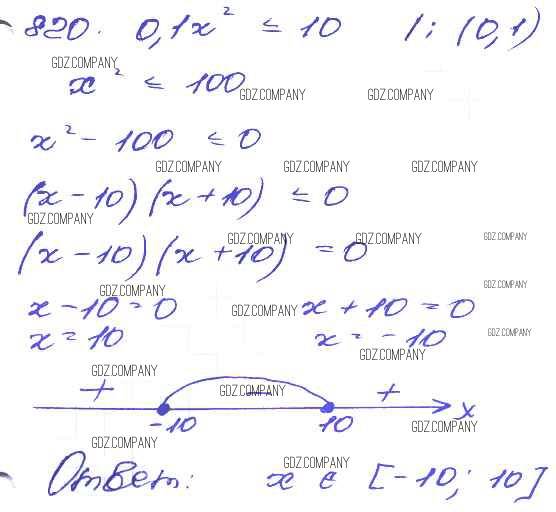 820. 0,1x² ≤ 10 | : (0,1)
GDZ.COMPANY
x² ≤ 100
GDZ.COMPANY GDZ.COMPANY
x² - 100 ≤ 0
GDZ.COMPANY GDZ.COMPANY GDZ.COMPANY
(x - 10) (x + 10) ≤ 0
GDZ.COMPANY
GDZ.COMPANY GDZ.COMPANY GDZ.COMPANY
(x - 10) (x + 10) = 0
GDZ.COMPANY GDZ.COMPANY
x - 10 = 0 GDZ.COMPANY x + 10 = 0
x = 10 x = -10 GDZ.COMPANY
GDZ.COMPANY
GDZ.COMPANY
+ GDZ.COMPANY - +
-10 10 x
GDZ.COMPANY
GDZ.COMPANY
GDZ.COMPANY
Ответ: x ∈ [-10; 10]